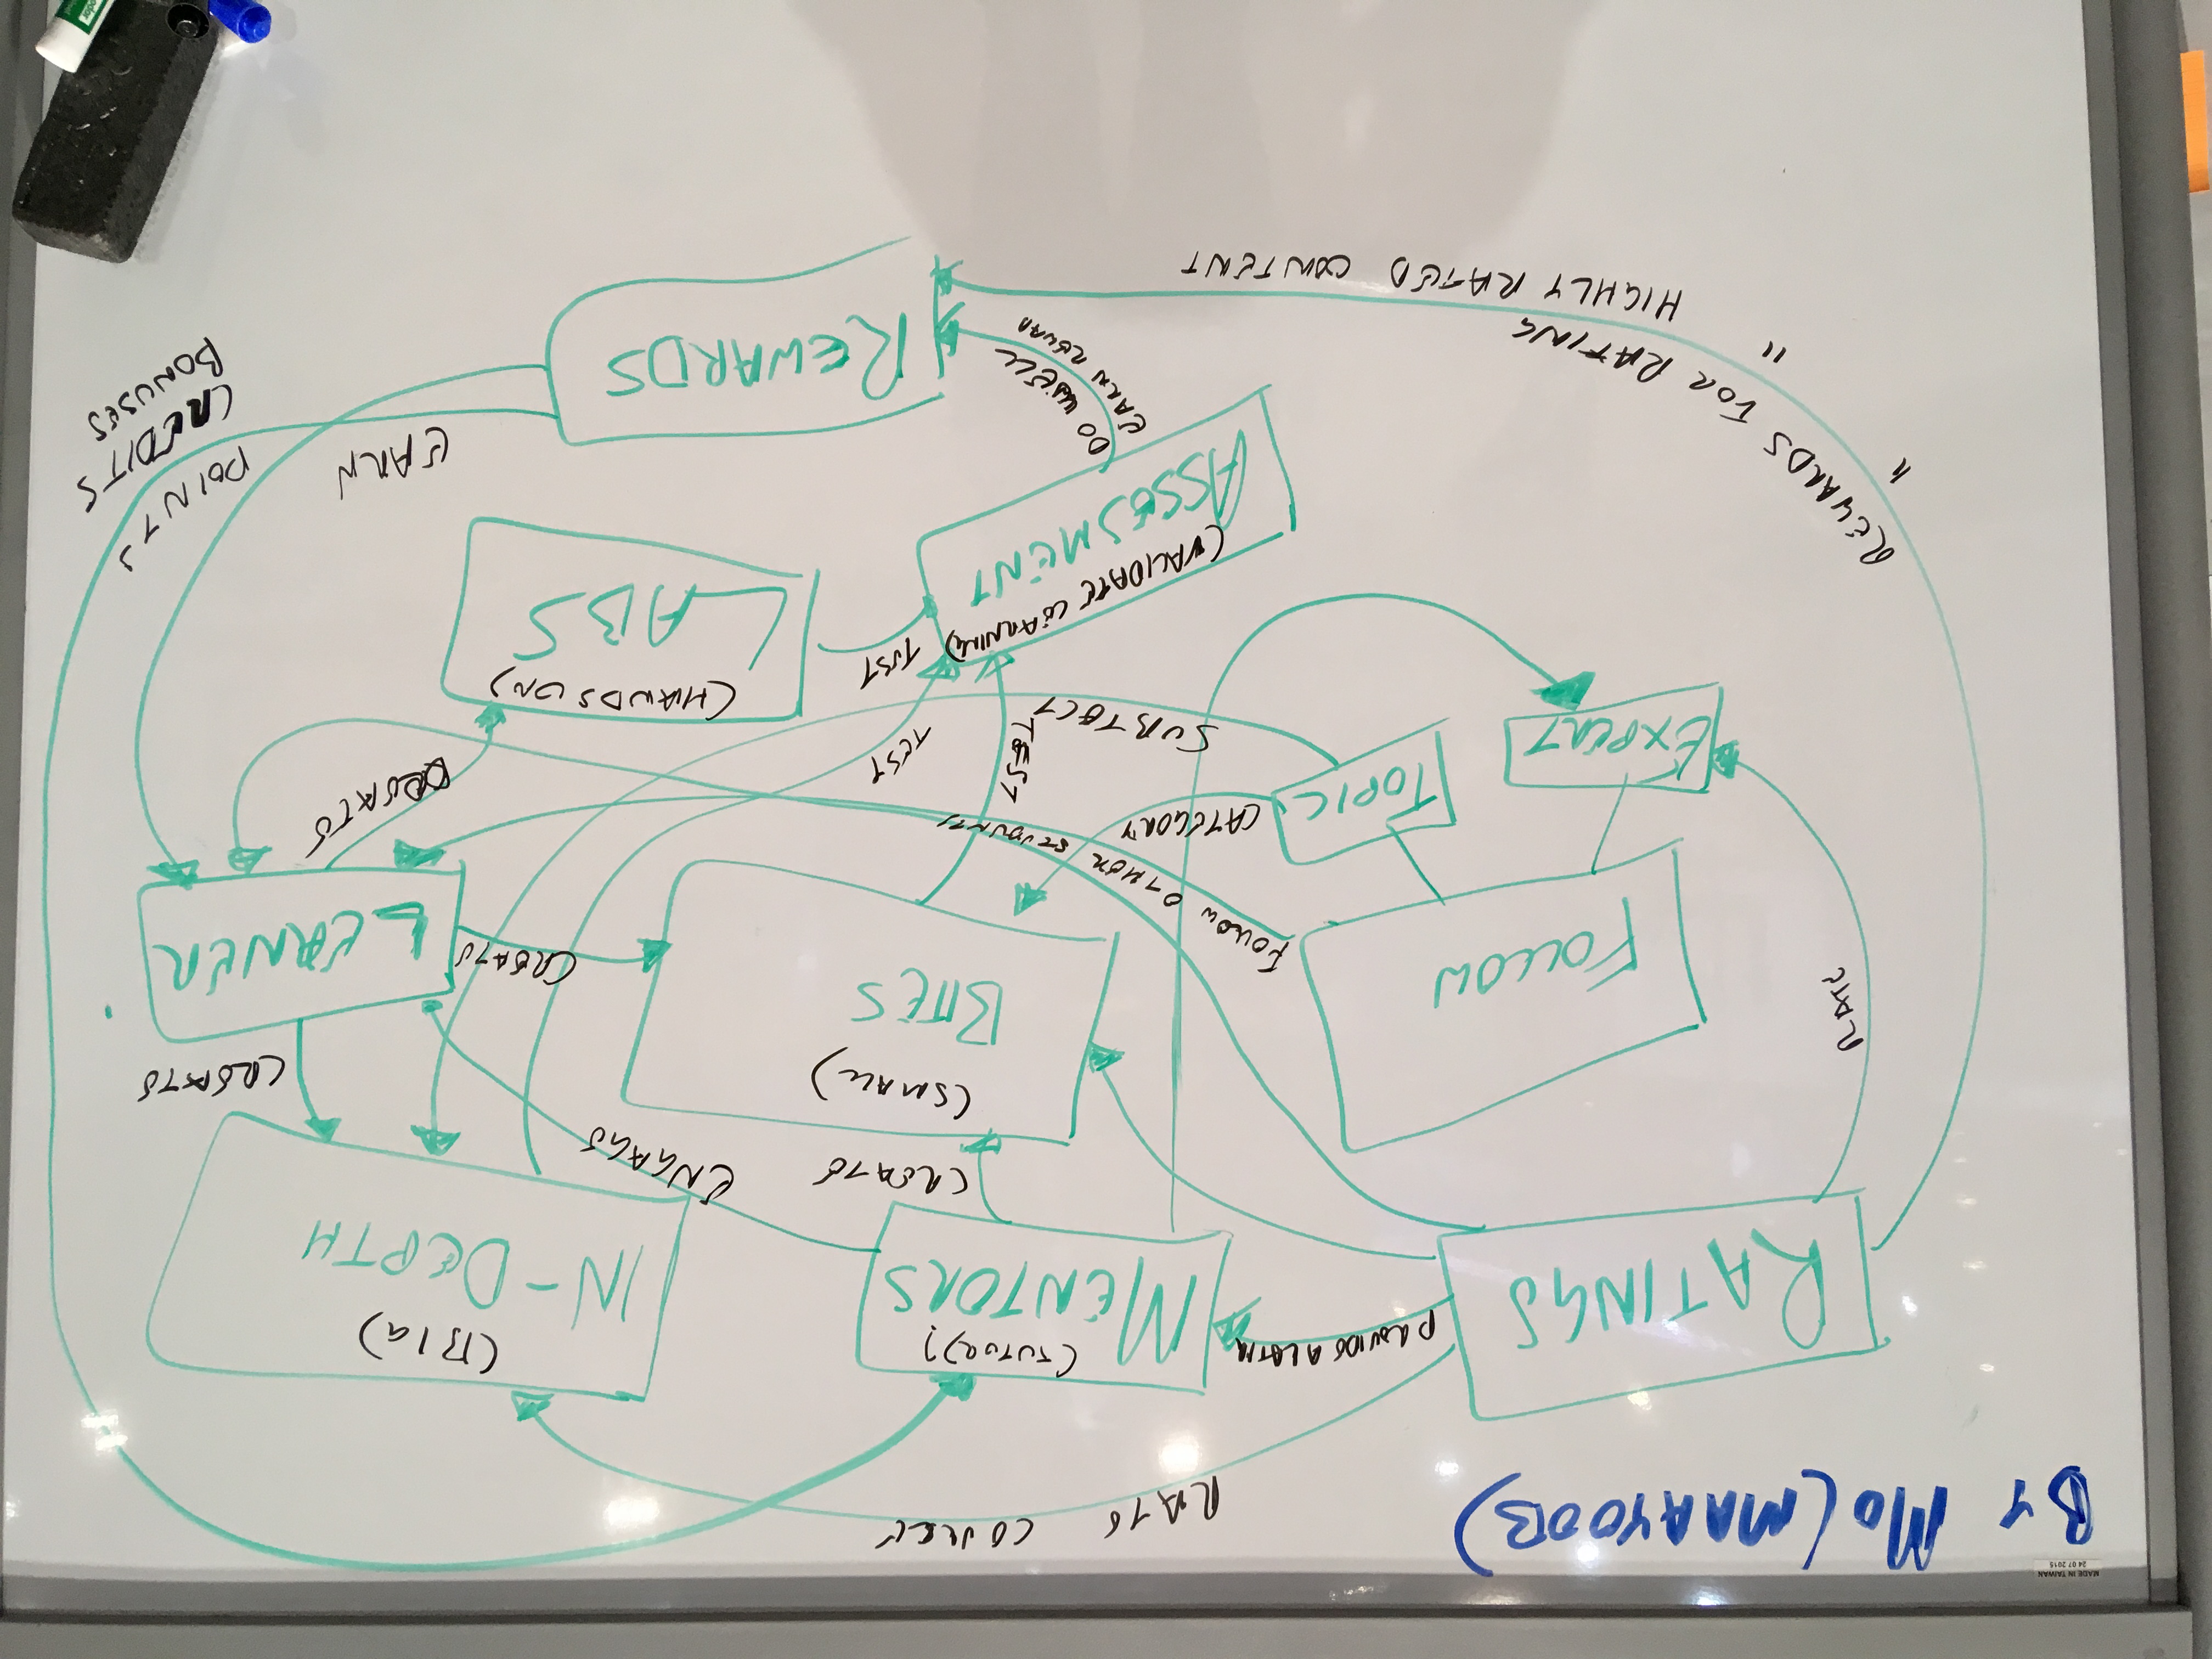 MADE IN TAIWAN
24 07 2015
BY MO (MAAYOOB)
RATE COURCE
RATINGS
PROVIDE A RATIN
(TUTOR)?
MENTORS
(BIG)
IN-DEPTH
CREATE
ENGAGE
(SMALL)
BITES
CREATE
RATE
FOLLOW
CREATE
LEARNER
FOLLOW OTHER STUDENTS
TOPIC
CATEGORY
EXPERT
SUBJECT
TEST
TEST
CREATE
(HANDS ON)
LABS
TEST
(VALIDATE LEARNING)
ASSESMENT
DO WELL
EARN REWAD
REWARDS
EARN
POINTS
CREDITS
BONUSES
REWARDS FOR RATING
" " HIGHLY RATED CONTENT